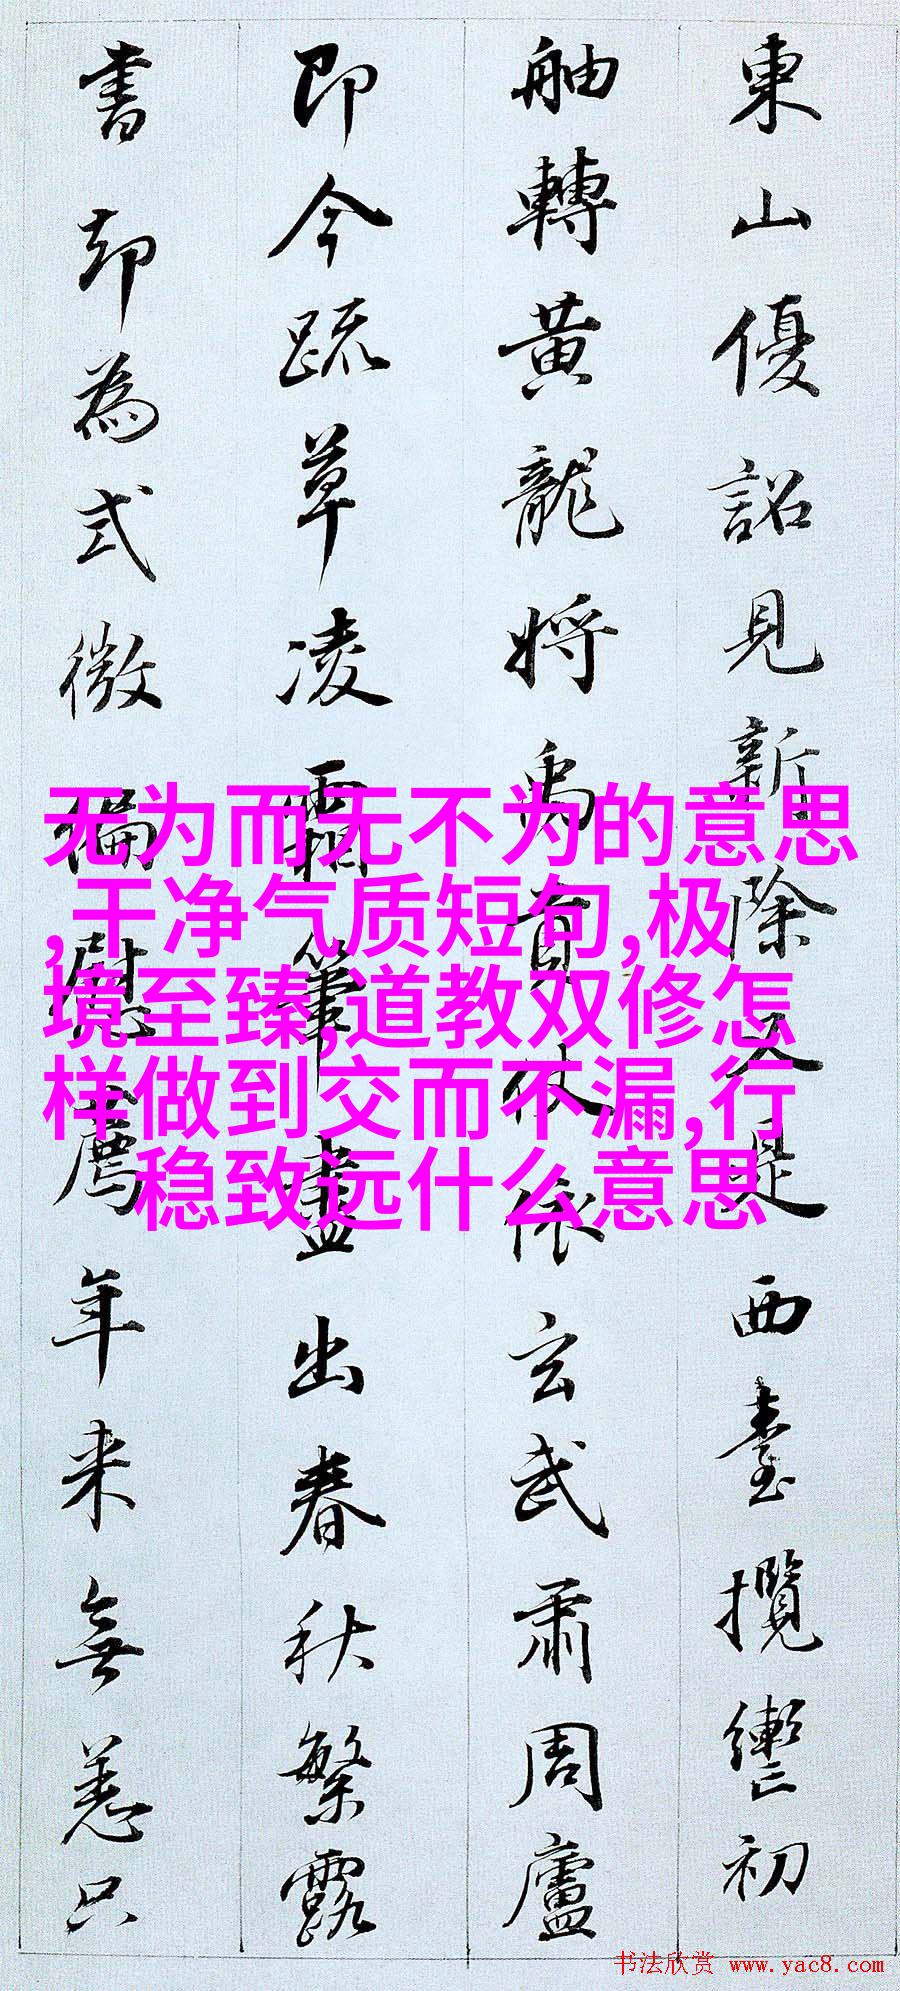 東山優詔見新除又是西臺攬轡初
舳轉黃龍將禹貢仗依玄武肅周廬
即今疏草凌霜筆盡出春秋繁露
書却為式微偏慰薦年来無恙只
无为而无不为的意思
,干净气质短句,极
境至臻,道教双修怎
样做到交而不漏,行
稳致远什么意思
书法欣赏 www.yac8.com